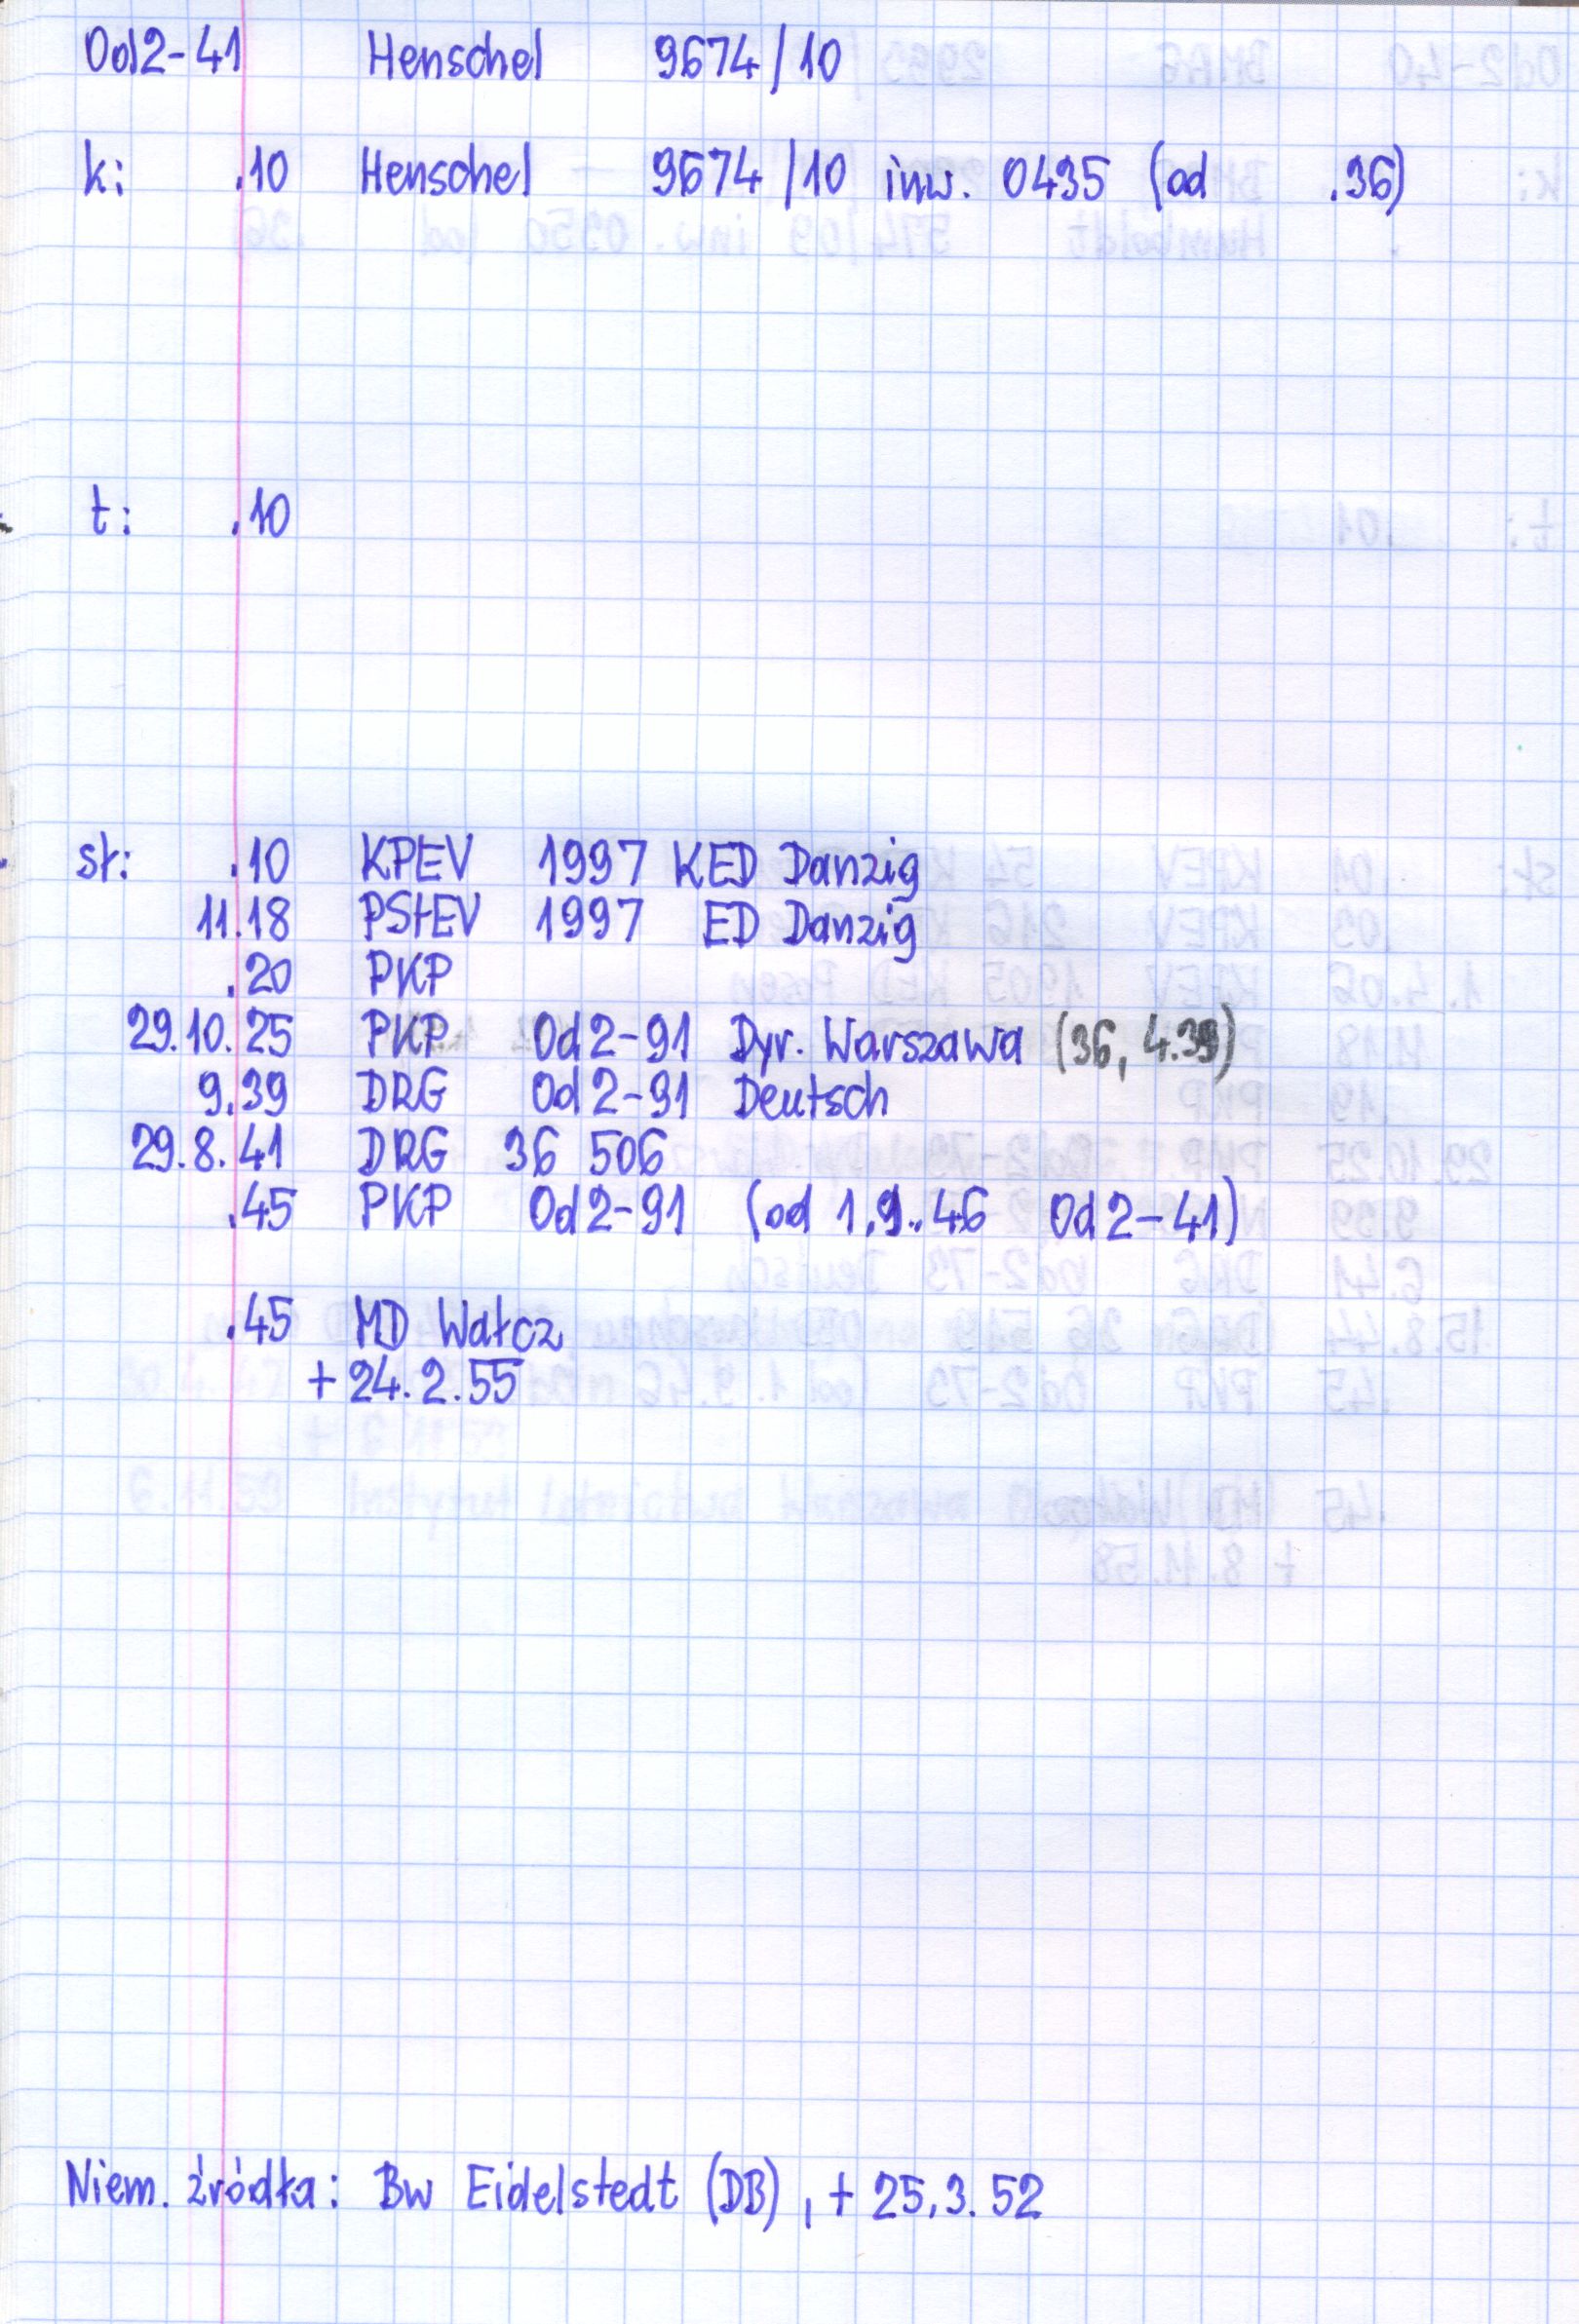 Od2-41 Henschel 9674/10
k: .10 Henschel 9674/10 inw. 0435 (od .36)
t: .10
st: .10 KPEV 1997 KED Danzig
11.18 PStEV 1997 ED Danzig
.20 PKP
29.10.25 PKP Od2-91 Dyr. Warszawa (36, 4.39)
9.39 DRG Od2-91 Deutsch
29.8.41 DRG 36 506
.45 PKP Od2-91 (od 1.9.46 Od2-41)
.45 MD Wałcz
+ 24.2.55
Niem. źródła: Bw Eidelstedt (DB), + 25.3.52